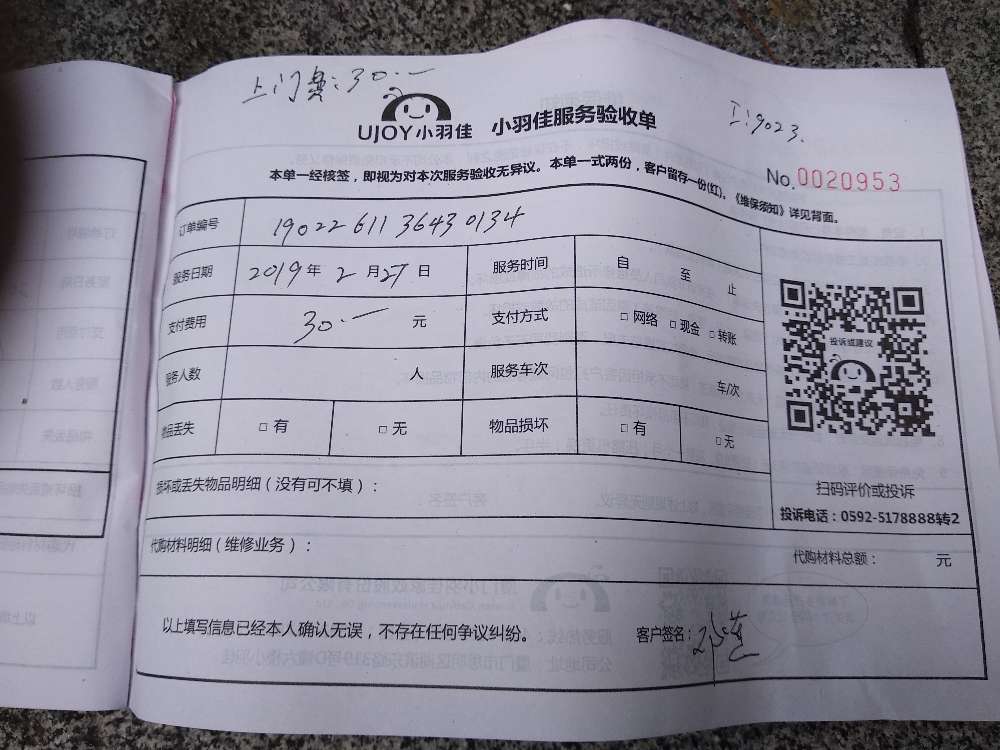 上门费:30.一
UJOY小羽佳 小羽佳服务验收单
工:9023.
本单一经核签,即视为对本次服务验收无异议。本单一式两份,客户留存一份(红)。《维保须知》详见背面。
No.0020953
订单编号 1902261136430134
服务日期 2019年2月27日 服务时间 自 至 止
支付费用 30.一 元 支付方式 □ 网络 □ 现金 □ 转账
服务人数 人 服务车次 车/次
物品丢失 □ 有 □ 无 物品损坏 □ 有 □ 无
投诉或建议
扫码评价或投诉
投诉电话:0592-5178888转2
损坏或丢失物品明细(没有可不填):
代购材料明细(维修业务): 代购材料总额: 元
以上填写信息已经本人确认无误,不存在任何争议纠纷。 客户签名: